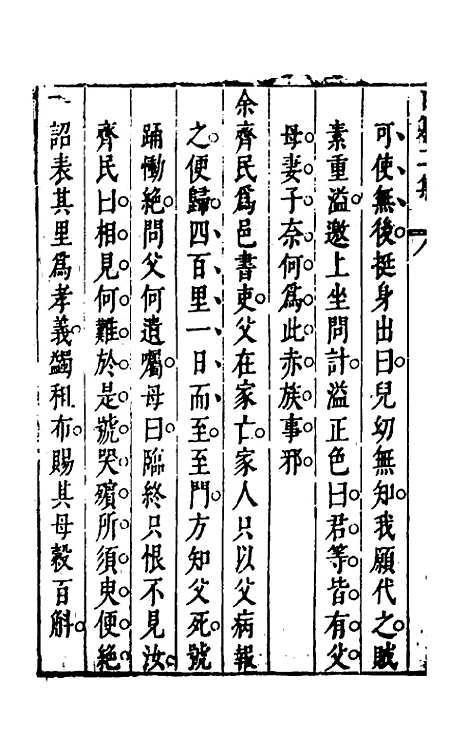 可使無後挺身出曰兒幼無知我願代之賊
素重溢邀上坐問計溢正色曰君等皆有父
母妻子奈何爲此赤族事邪
余齊民爲邑書吏父在家亡家人只以父病報
之便歸四百里一日而至至門方知父死號
踊慟絶問父何遺囑母曰臨終只恨不見汝
齊民曰相見何難於是號哭殯所須臾便絶
一詔表其里爲孝義蠲租布賜其母穀百斛